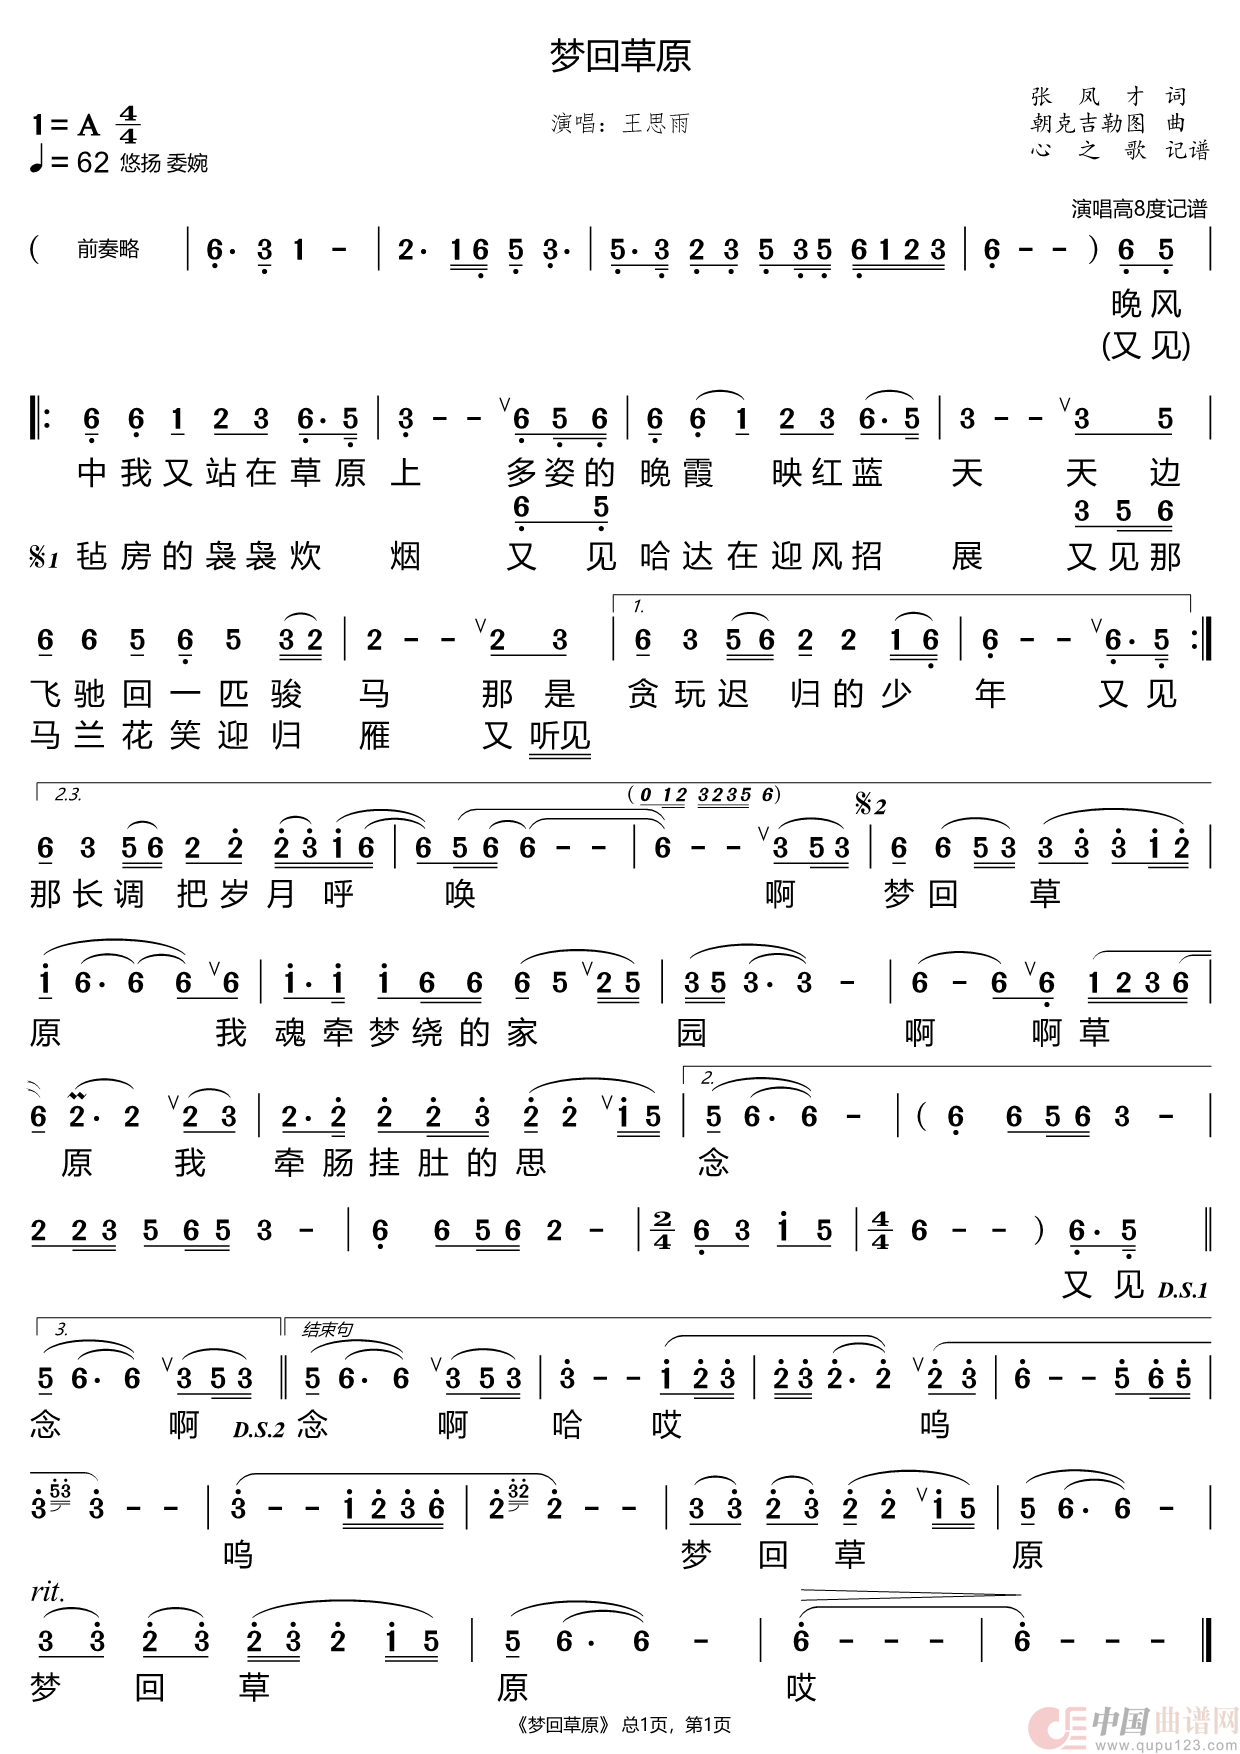 梦回草原
1=A 4/4
演唱：王思雨
张凤才 词
朝克吉勒图 曲
心之歌 记谱
♩=62 悠扬 委婉
演唱高8度记谱
( 前奏略 | 6· 3 1 - | 2· 16 5 3· | 5· 3 2 3 5 35 6123 | 6 - - ) 6 5 |
晚风
(又见)
6 6 1 2 3 6· 5 | 3 - - 6 5 6 | 6 6 1 2 3 6· 5 | 3 - - 3 5 |
中我又站在草原上 多姿的晚霞 映红蓝 天 天 边
6 5 3 5 6
𝄋1 毡房的袅袅炊 烟 又 见哈达在迎风招 展 又见那
1.
6 6 5 6 5 3 2 | 2 - - 2 3 | 6 3 5 6 2 2 1 6 | 6 - - 6· 5 :||
飞驰回一匹骏 马 那是 贪玩迟 归的少 年 又见
马兰花笑迎归 雁 又听见
2.3.
(0 12 3235 6)
𝄋2
6 3 5 6 2 2 2 3 1 6 | 6 5 6 6 - - | 6 - - 3 5 3 | 6 6 5 3 3 3 3 1 2 |
那长调 把岁月呼 唤 啊 梦回 草
1 6· 6 6 6 | 1· 1 1 6 6 6 5 2 5 | 3 5 3· 3 - | 6 - 6 6 1 2 3 6 |
原 我 魂牵梦绕的家 园 啊 啊草
2.
6 2· 2 2 3 | 2· 2 2 2 3 2 2 1 5 | 5 6· 6 - | ( 6 6 5 6 3 - |
原 我 牵肠挂肚的思 念
2 2 3 5 6 5 3 - | 6 6 5 6 2 - | 2/4 6 3 1 5 | 4/4 6 - - ) 6· 5 ||
又见 D.S.1
3. 结束句
5 6· 6 3 5 3 || 5 6· 6 3 5 3 | 3 - - 1 2 3 | 2 3 2· 2 2 3 | 6 - - 5 6 5 |
念 啊 D.S.2 念 啊 哈 哎 呜
3 53 3 - - | 3 - - 1 2 3 6 | 2 32 2 - - | 3 3 2 3 2 2 1 5 | 5 6· 6 - |
呜 梦 回 草 原
rit.
3 3 2 3 2 3 2 1 5 | 5 6· 6 - | 6 - - - | 6 - - - ||
梦 回 草 原 哎
《梦回草原》 总1页，第1页
中国曲谱网
www.qupu123.com